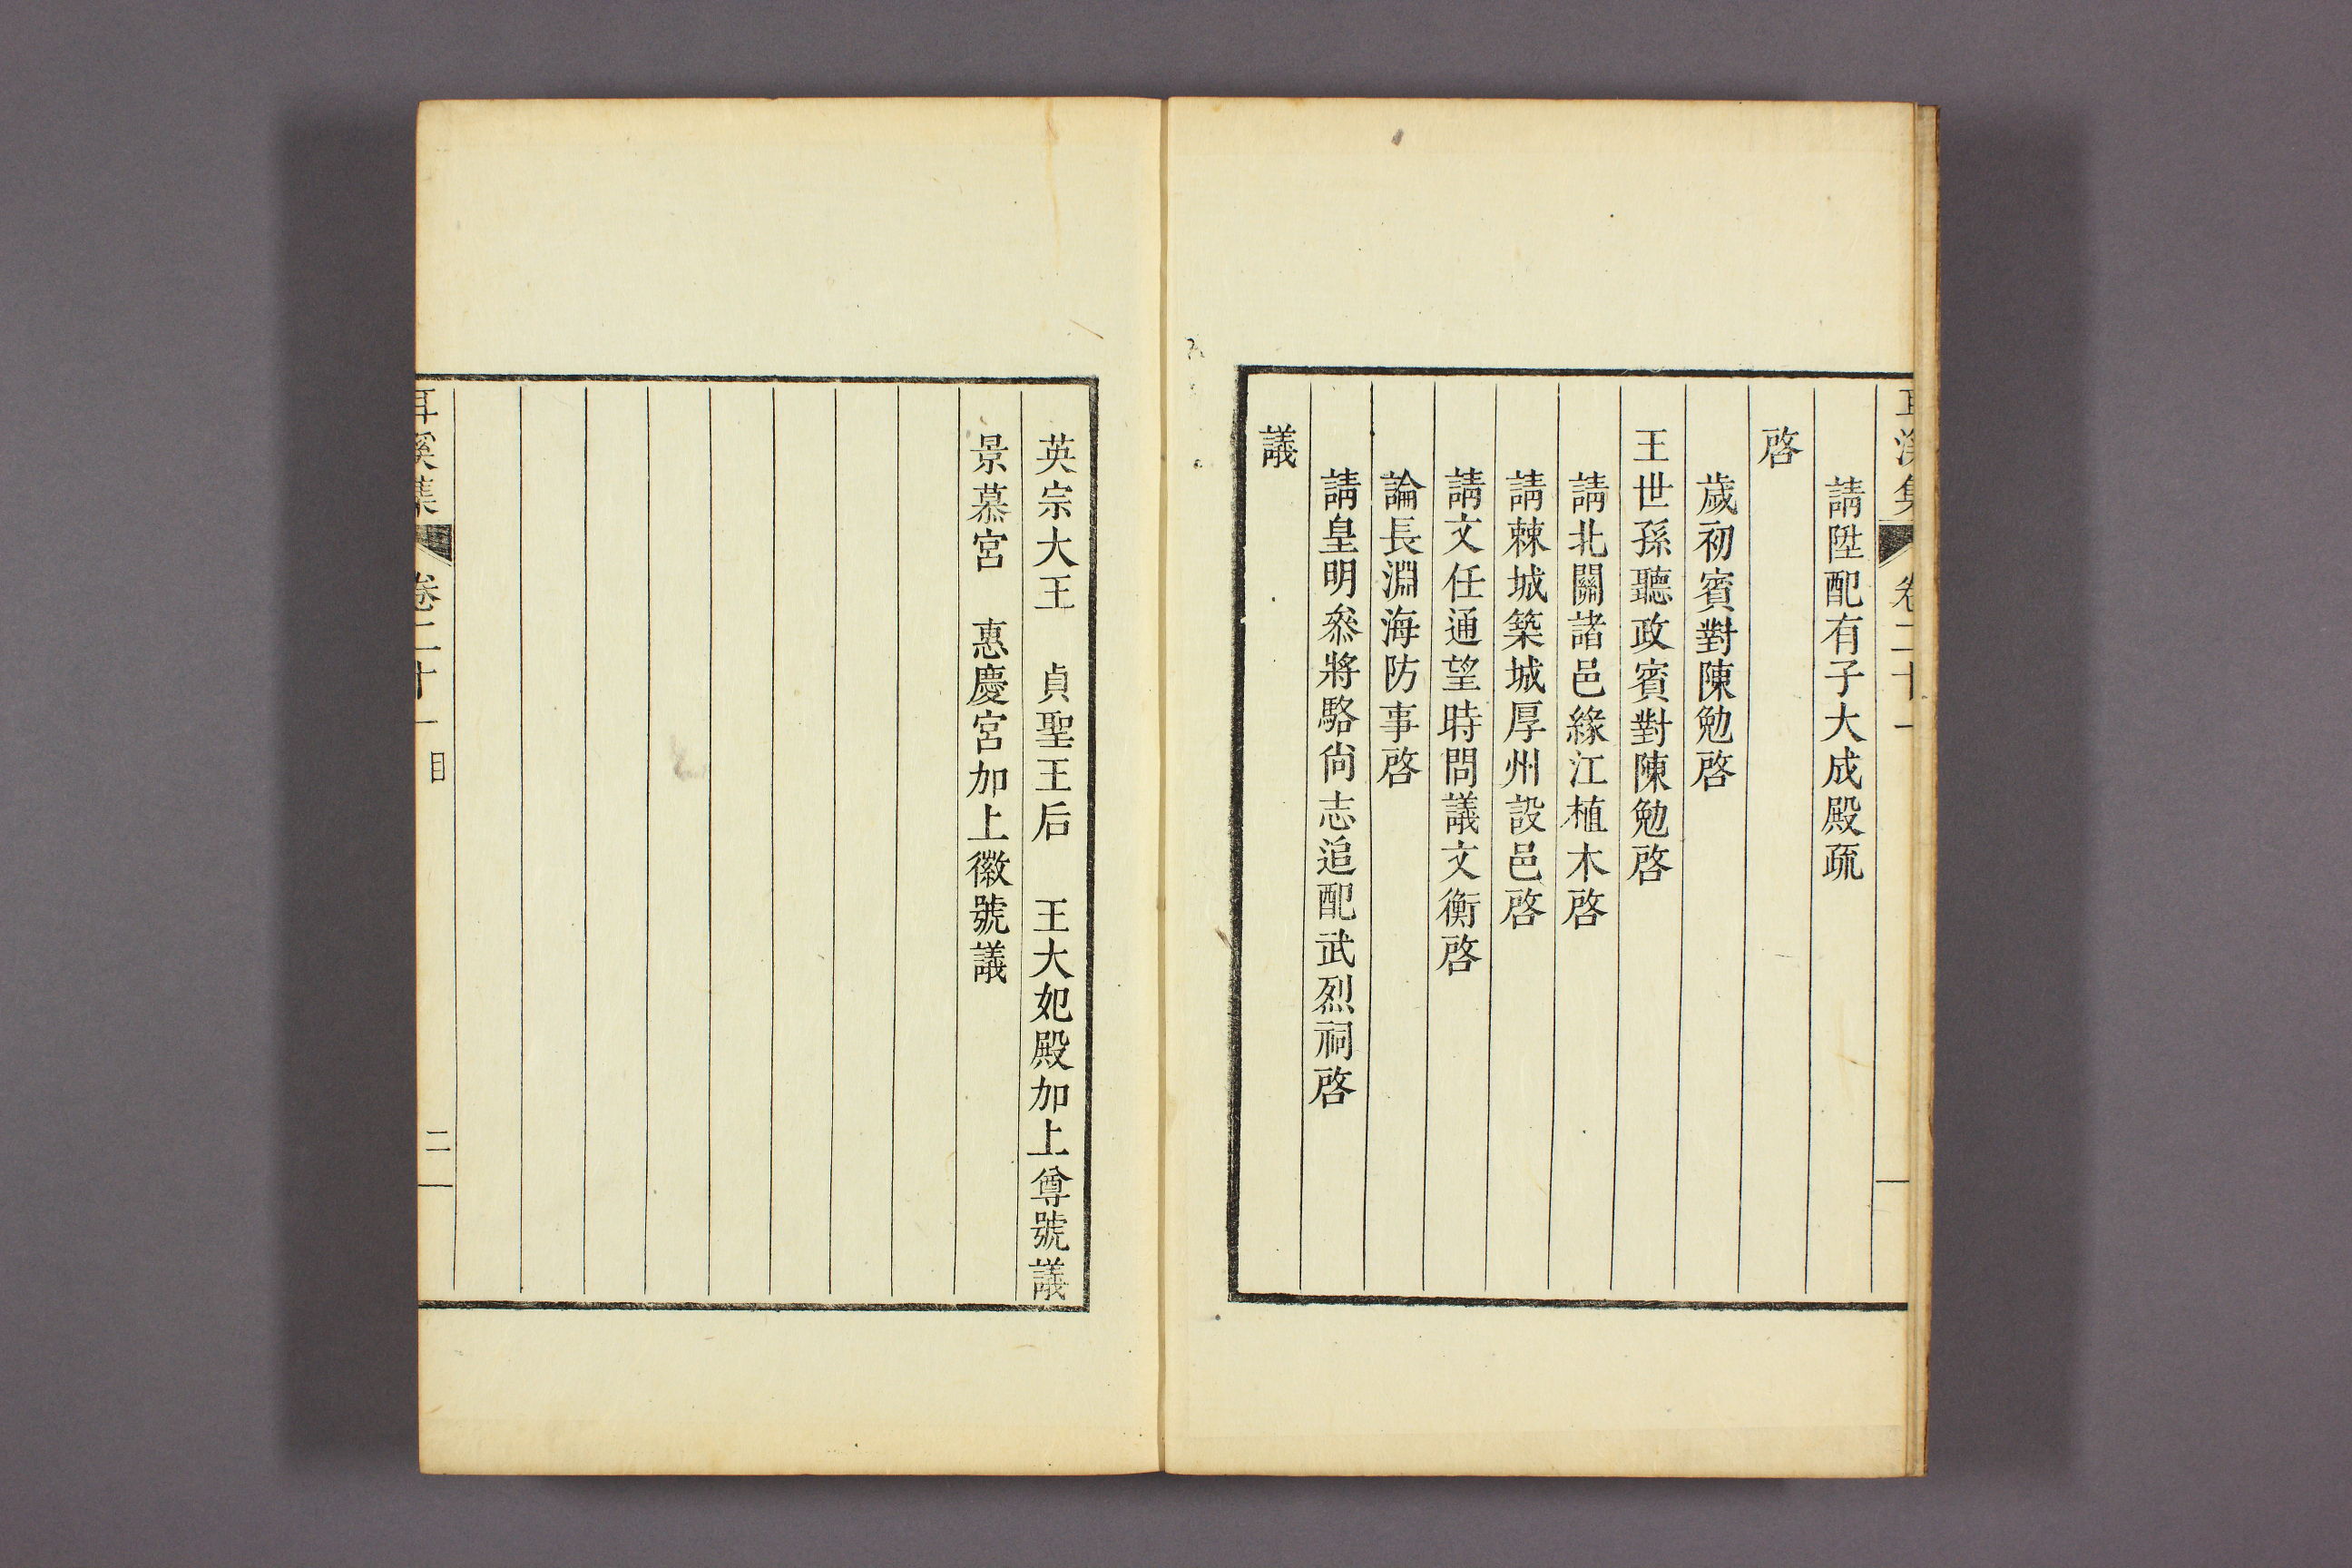 耳溪集 卷二十一
請陞配有子大成殿疏
啓
歲初賓對陳勉啓
王世孫聽政賓對陳勉啓
請北關諸邑緣江植木啓
請棘城築城厚州設邑啓
請文任通望時問議文衡啓
論長淵海防事啓
請皇明叅將駱尙志追配武烈祠啓
議
英宗大王 貞聖王后 王大妃殿加上尊號議
景慕宮 惠慶宮加上徽號議
耳溪集 卷二十一 目 二